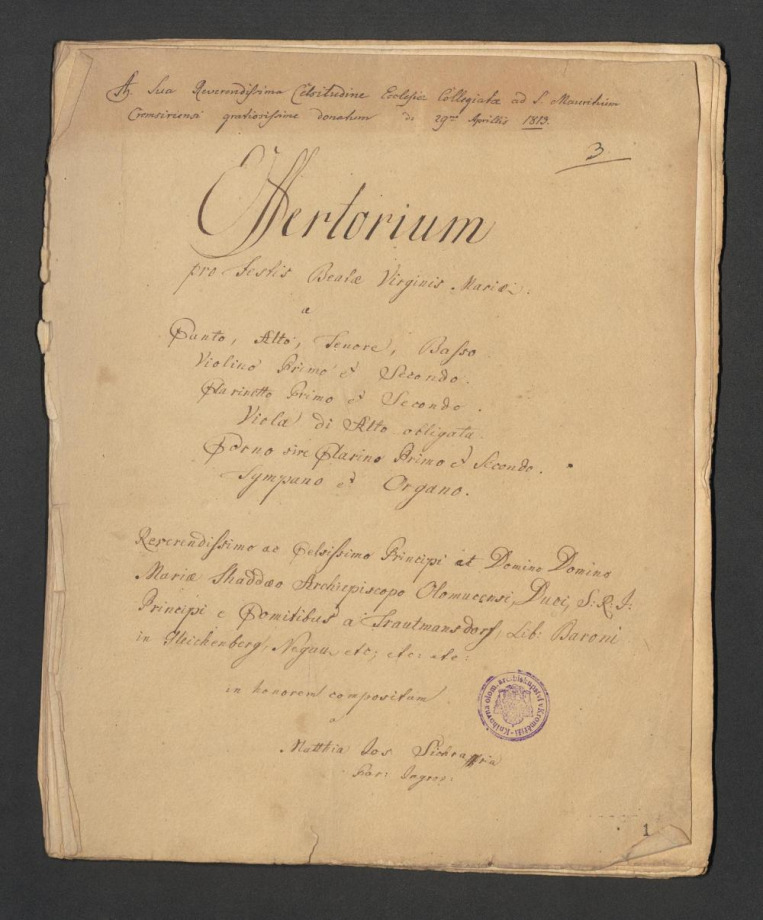 Sua Reverendissima Celsitudine Ecclesiæ Collegiatæ ad S. Mauritium
Cremsiriensi gratiosissime donatum di 29na Aprillis 1813.
3
Offertorium
pro Festis Beatæ Virginis Mariæ.
a
Canto, Alto, Tenore, Basso
Violino Primo et Secondo.
Clarinetto Primo et Secondo.
Viola di Alto obligata.
Corno sive Clarino Primo et Secondo.
Tympano et Organo.
Reverendissimo ac Celsissimo Principi et Domino Domino
Mariæ Thaddæo Archiepiscopo Olomucensi, Duci, S: R: I:
Principi e Comitibus a Trautmansdorf, Lib: Baroni
in Gleichenberg, Negau etc; etc: etc:
in honorem compositum
a
Matthia Jos
Knihovna olom. arcibiskupství v Kroměříži
1